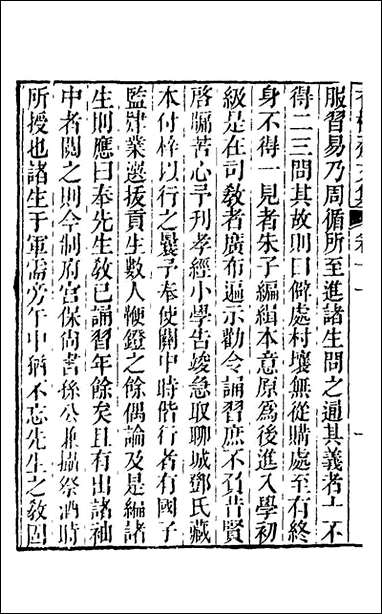 服習易乃周循所至進諸生問之通其義者十不
得二三問其故則曰僻處村壤無從購處至有終
身不得一見者朱子編緝本意原為後進入學初
級是在司教者廣布遍示勸令誦習庶不召昔賢
啓牖苦心予刊孝經小學告竣急取聊城鄧氏藏
本付梓以行之曩予奉使關中時偕行者有國子
監肄業選拔貢生數人鞭鐙之餘偶論及是編諸
生則應曰奉先生教已誦習年餘矣且有出諸袖
中者閱之則今制府宮保尚書孫公兼攝祭酒時
所授也諸生于軍需旁午中猶不忘先生之教因